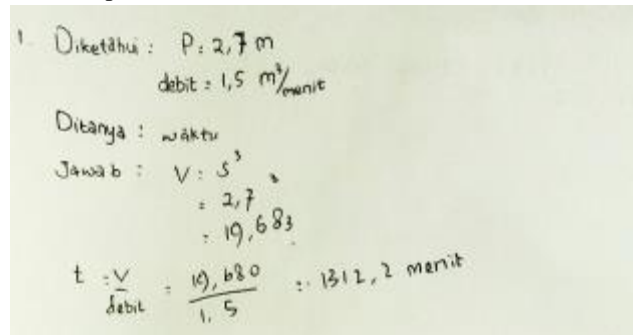 1. Diketahui : P : 2,7 m
debit = 1,5 m³/menit
Ditanya : waktu
Jawab : V : s³
= 2,7³
= 19,683
t = V/debit = 19,680/1,5 = 1312,2 menit